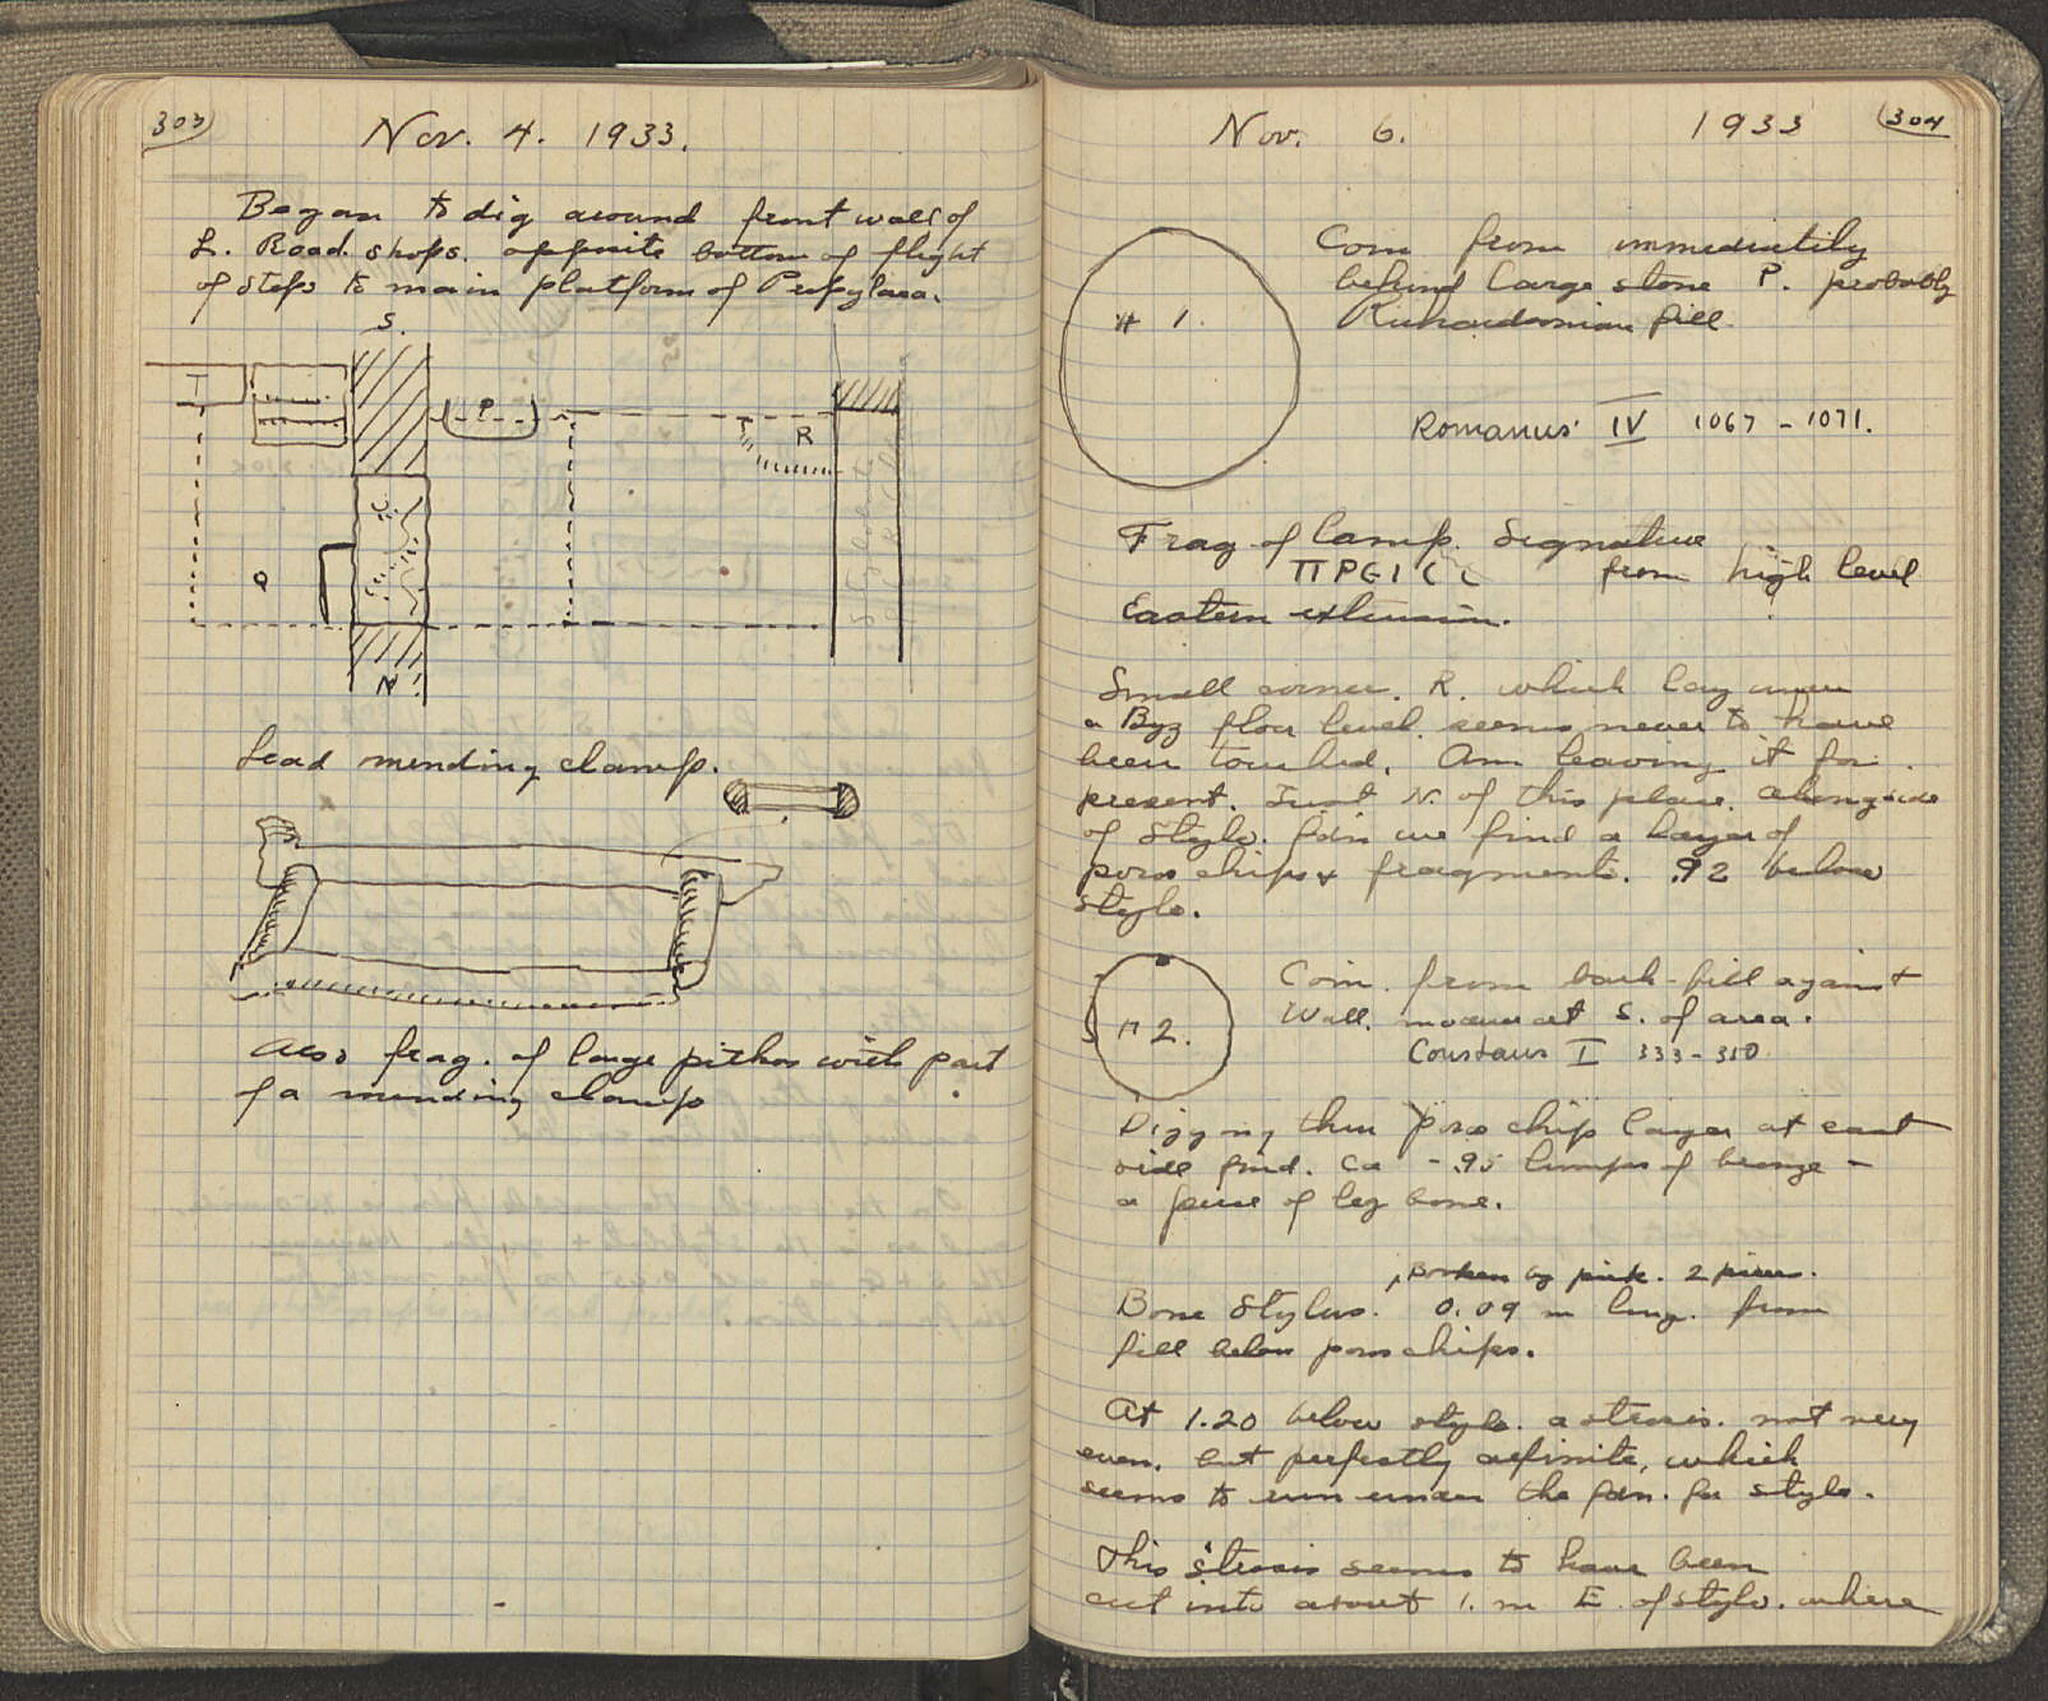 303
Nov. 4. 1933.
Began to dig around front wall of
L. Road. shops. opposite bottom of flight
of steps to main platform of Propylaea.
S.
P
R
Q
N
Stylobate
Lead mending clamp.
Also frag. of large pithos with part
of a mending clamp
304
Nov. 6. 1933
Coin from immediately
behind large stone P. probably
Richardsonian fill.
# 1.
Romanus IV 1067 - 1071.
Frag of lamp. Signature
ΠΡΕΙC from high level
Eastern extension.
Small corner. R. which lay under
a Byz floor level. seems never to have
been touched. Am leaving it for
present. Just N. of this place. alongside
of stylo. fdn we find a layer of
poros chips & fragments. .92 below
stylo.
Coin. from back-fill against
# 2.
Wall. S. of area.
Constans I 333-350
Digging thru poros chip layer at east
side find. ca - .95 lumps of bronze -
a piece of leg bone.
, broken by pick. 2 pieces.
Bone Stylus. 0.09 m long. from
fill below poros chips.
At 1.20 below stylo. a stereos. not very
even. but perfectly definite, which
seems to run under the fdn. for stylo.
This stereos seems to have been
cut into about 1. m E. of stylo. where